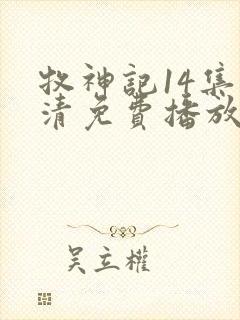 牧神記14集
清免費播放
吴立權